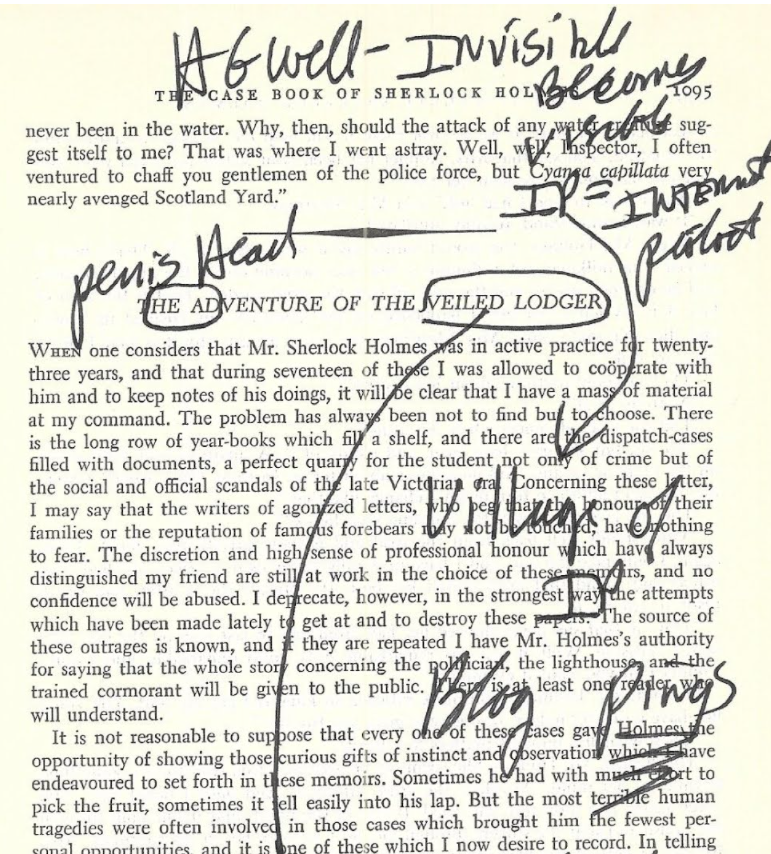 HG Well - Invisible
Becomes
THE CASE BOOK OF SHERLOCK HOLMES 1095
Visible
never been in the water. Why, then, should the attack of any water creature sug-
gest itself to me? That was where I went astray. Well, well, Inspector, I often
ventured to chaff you gentlemen of the police force, but Cyanea capillata very
nearly avenged Scotland Yard."
IP = INTERNET
penis Head
THE ADVENTURE OF THE VEILED LODGER
WHEN one considers that Mr. Sherlock Holmes was in active practice for twenty-
three years, and that during seventeen of these I was allowed to coöperate with
him and to keep notes of his doings, it will be clear that I have a mass of material
at my command. The problem has always been not to find but to choose. There
is the long row of year-books which fill a shelf, and there are the dispatch-cases
filled with documents, a perfect quarry for the student not only of crime but of
the social and official scandals of the late Victorian era. Concerning these latter,
I may say that the writers of agonized letters, who beg that the honour of their
families or the reputation of famous forebears may not be touched, have nothing
to fear. The discretion and high sense of professional honour which have always
distinguished my friend are still at work in the choice of these memoirs, and no
confidence will be abused. I deprecate, however, in the strongest way the attempts
which have been made lately to get at and to destroy these papers. The source of
these outrages is known, and if they are repeated I have Mr. Holmes's authority
for saying that the whole story concerning the politician, the lighthouse, and the
trained cormorant will be given to the public. There is at least one reader who
will understand.
Village of
Blog Pings
It is not reasonable to suppose that every one of these cases gave Holmes the
opportunity of showing those curious gifts of instinct and observation which I have
endeavoured to set forth in these memoirs. Sometimes he had with much effort to
pick the fruit, sometimes it fell easily into his lap. But the most terrible human
tragedies were often involved in those cases which brought him the fewest per-
sonal opportunities, and it is one of these which I now desire to record. In telling